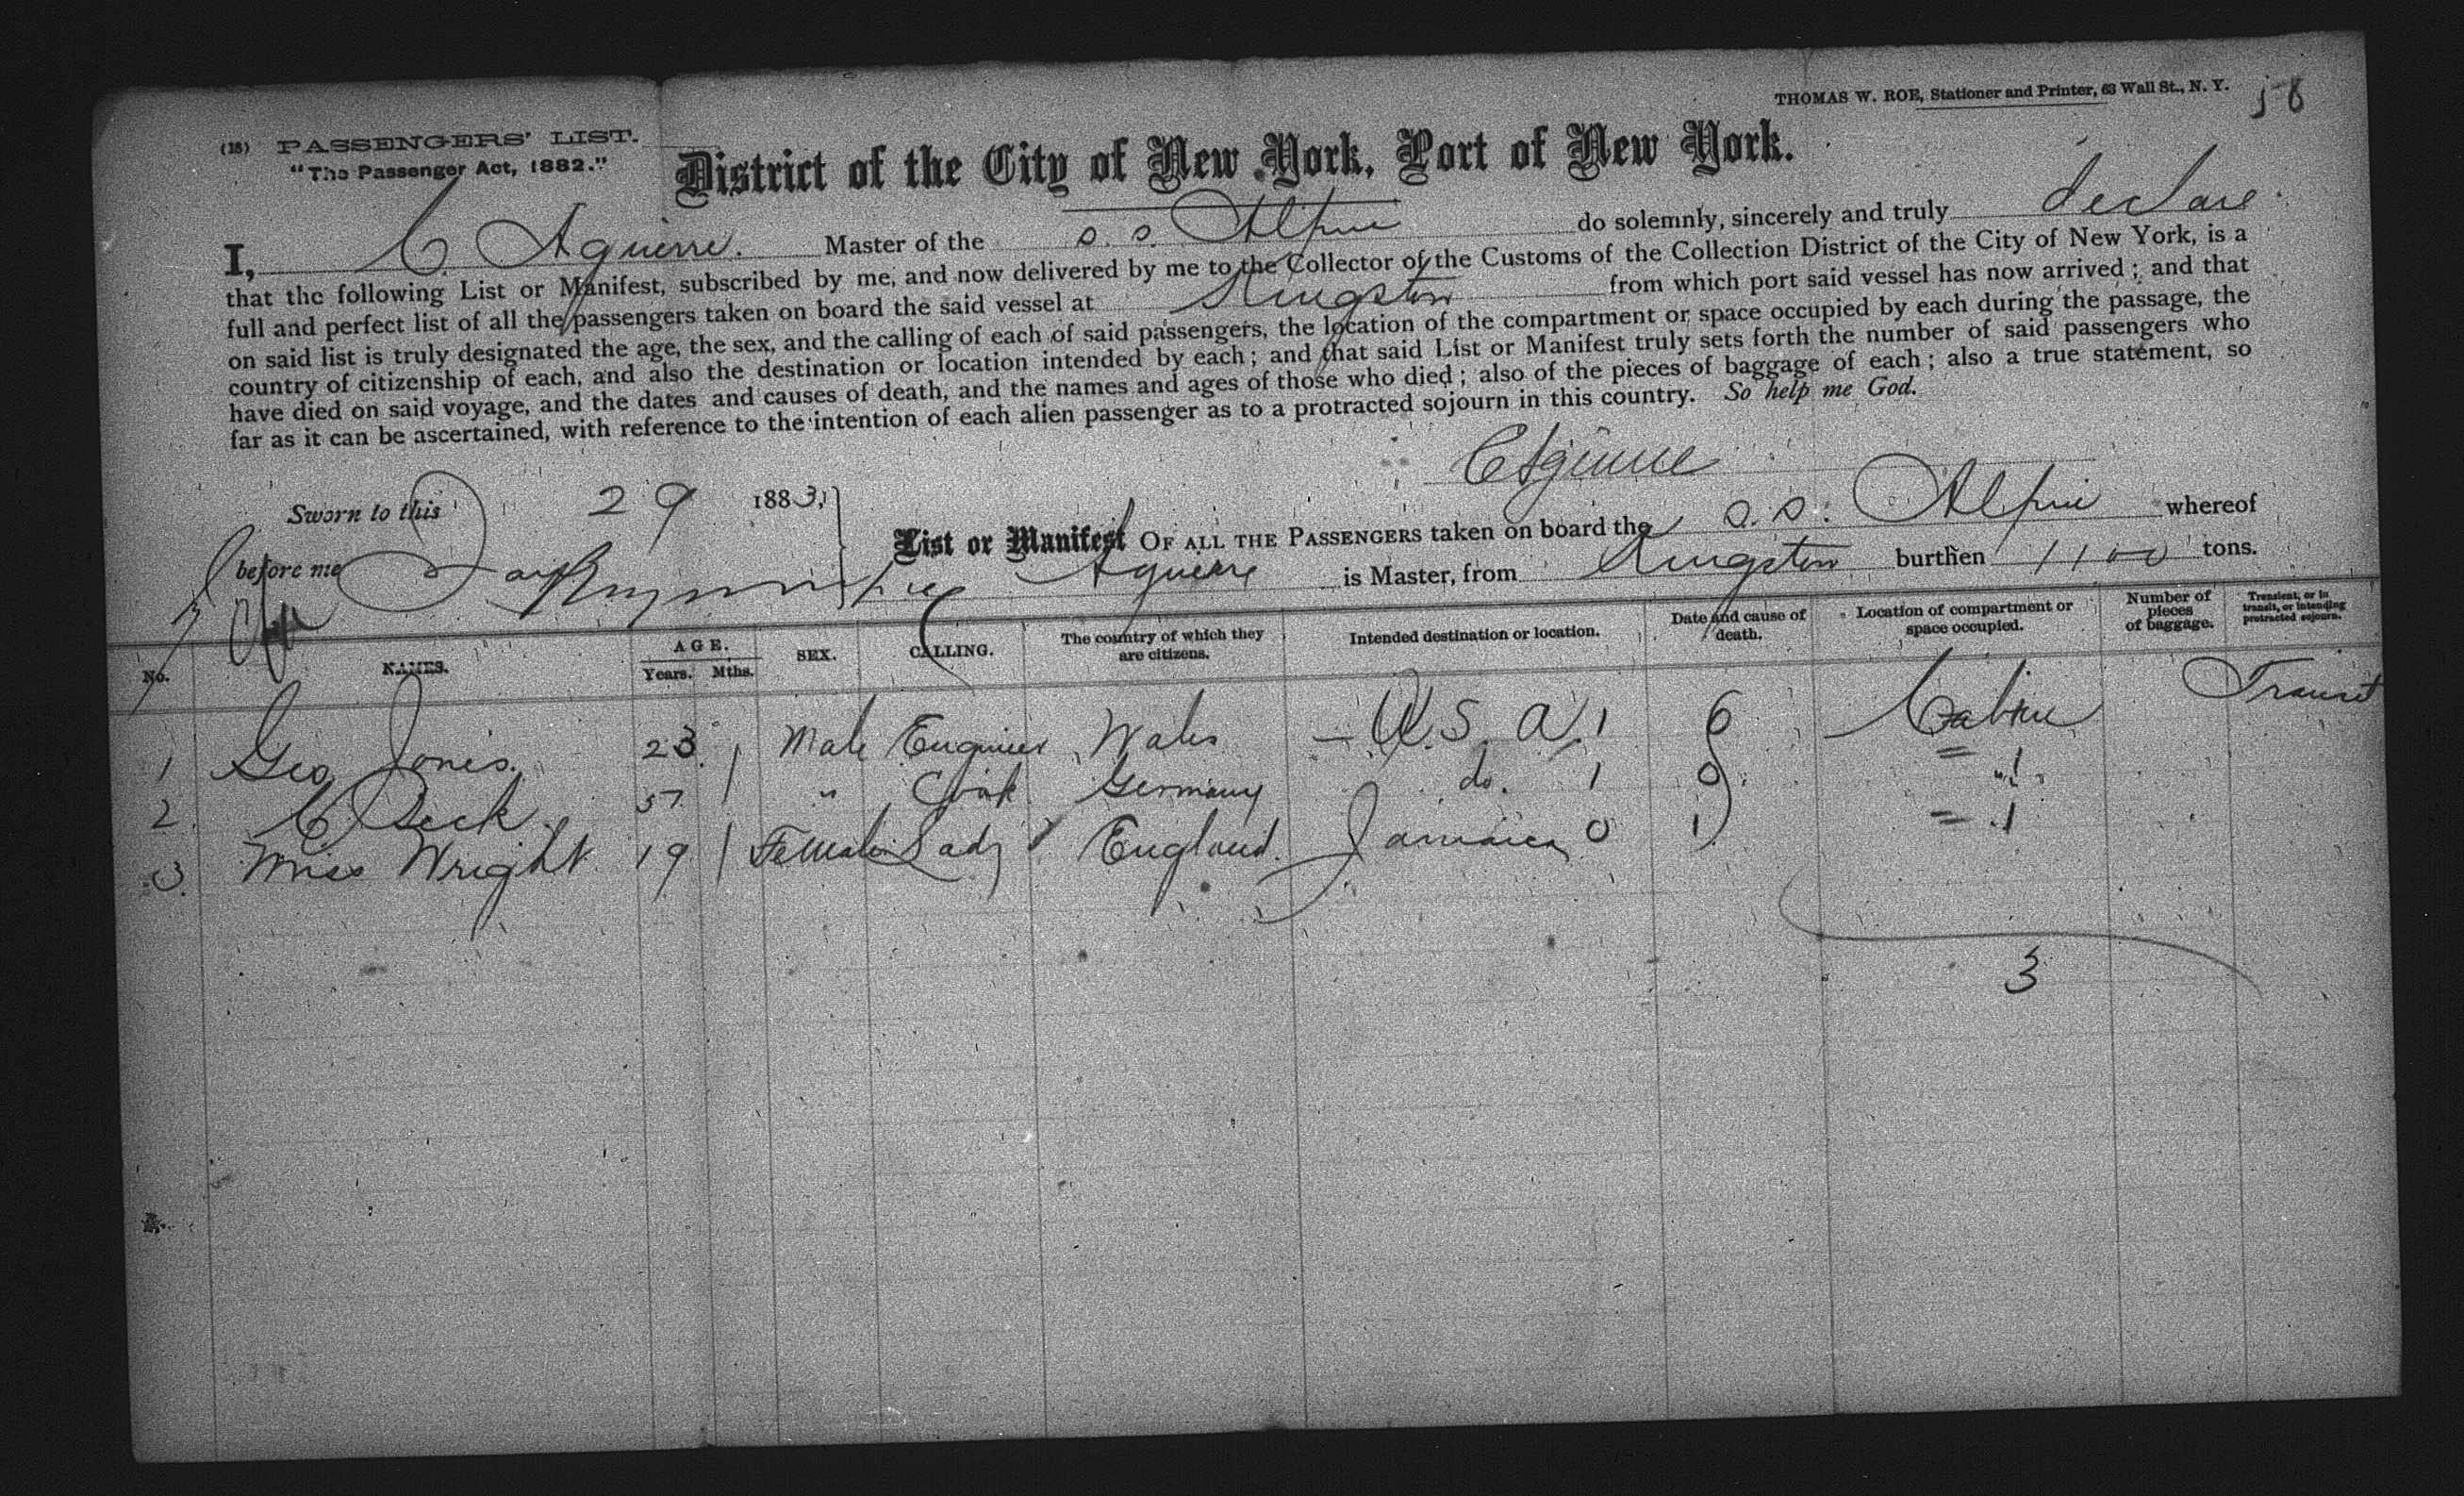 THOMAS W. ROE, Stationer and Printer, 63 Wall St., N. Y. 58
(18) PASSENGERS' LIST.
"The Passenger Act, 1882."
District of the City of New York, Port of New York.
I, C. Aguirre. Master of the s. s. Alpin do solemnly, sincerely and truly declare
that the following List or Manifest, subscribed by me, and now delivered by me to the Collector of the Customs of the Collection District of the City of New York, is a
full and perfect list of all the passengers taken on board the said vessel at Kingston from which port said vessel has now arrived; and that
on said list is truly designated the age, the sex, and the calling of each of said passengers, the location of the compartment or space occupied by each during the passage, the
country of citizenship of each, and also the destination or location intended by each; and that said List or Manifest truly sets forth the number of said passengers who
have died on said voyage, and the dates and causes of death, and the names and ages of those who died; also of the pieces of baggage of each; also a true statement, so
far as it can be ascertained, with reference to the intention of each alien passenger as to a protracted sojourn in this country. So help me God.
C Aguirre
Sworn to this 29 1883,
before me
List or Manifest OF ALL THE PASSENGERS taken on board the s. s. Alpin whereof
Aguirre is Master, from Kingston burthen 1100 tons.
No. NAMES. AGE. Years. Mths. SEX. CALLING. The country of which they are citizens. Intended destination or location. Date and cause of death. Location of compartment or space occupied. Number of pieces of baggage. Transient, or in transit, or intending protracted sojourn.
1 Geo Jones. 23 / Male Engineer Wales — U. S. A. 1 6 Cabin Transit
2. C Beck 57 / " Cook Germany do. 1 0 = 1
3. Miss Wright 19 / Female Lady England. Jamaica 0 1 = 1
3